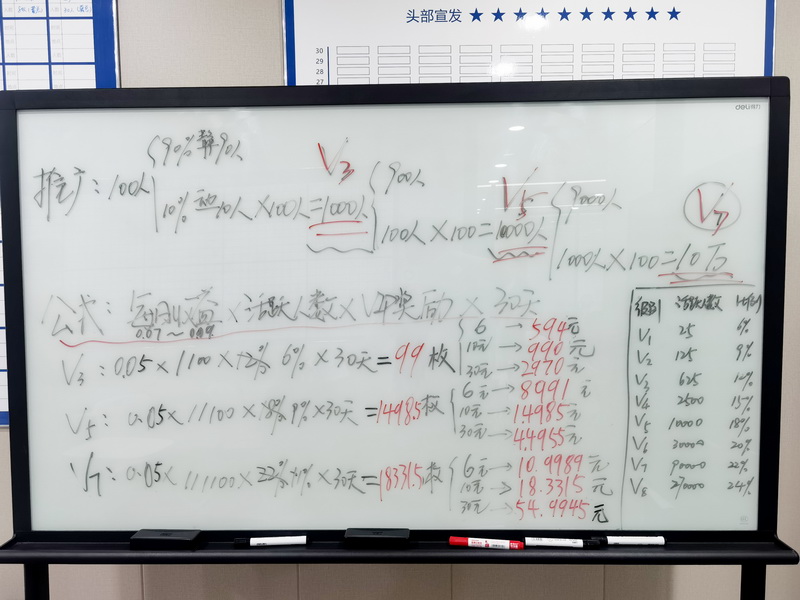 头部宣发 ★★★★★★★★★★
30
29
28
27
deli 得力
90% 静90人
推广:100人
10% 动10人×100人=1000人
V3
900人
100人×100=10000人
V5
9000人
1000人×100=10万
V7
公式:每日收益×活跃人数×V平奖励×30天
0.07~0.09
V3:0.05×1100×12% 6%×30天=99枚
6→594元
10元→990元
30元→2970元
V5:0.05×11100×18% 9%×30天=1498.5枚
6元→8991元
10元→14985元
30元→44955元
V7:0.05×111100×22% 11%×30天=18331.5枚
6元→10.9989元
10元→18.3315元
30元→54.9945元
级别 活跃人数 比例
V1 25 6%
V2 125 9%
V3 625 12%
V4 2500 15%
V5 10000 18%
V6 30000 20%
V7 90000 22%
V8 270000 24%